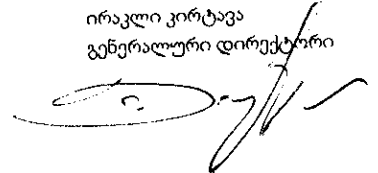 ირაკლი კირტავა
გენერალური დირექტორი